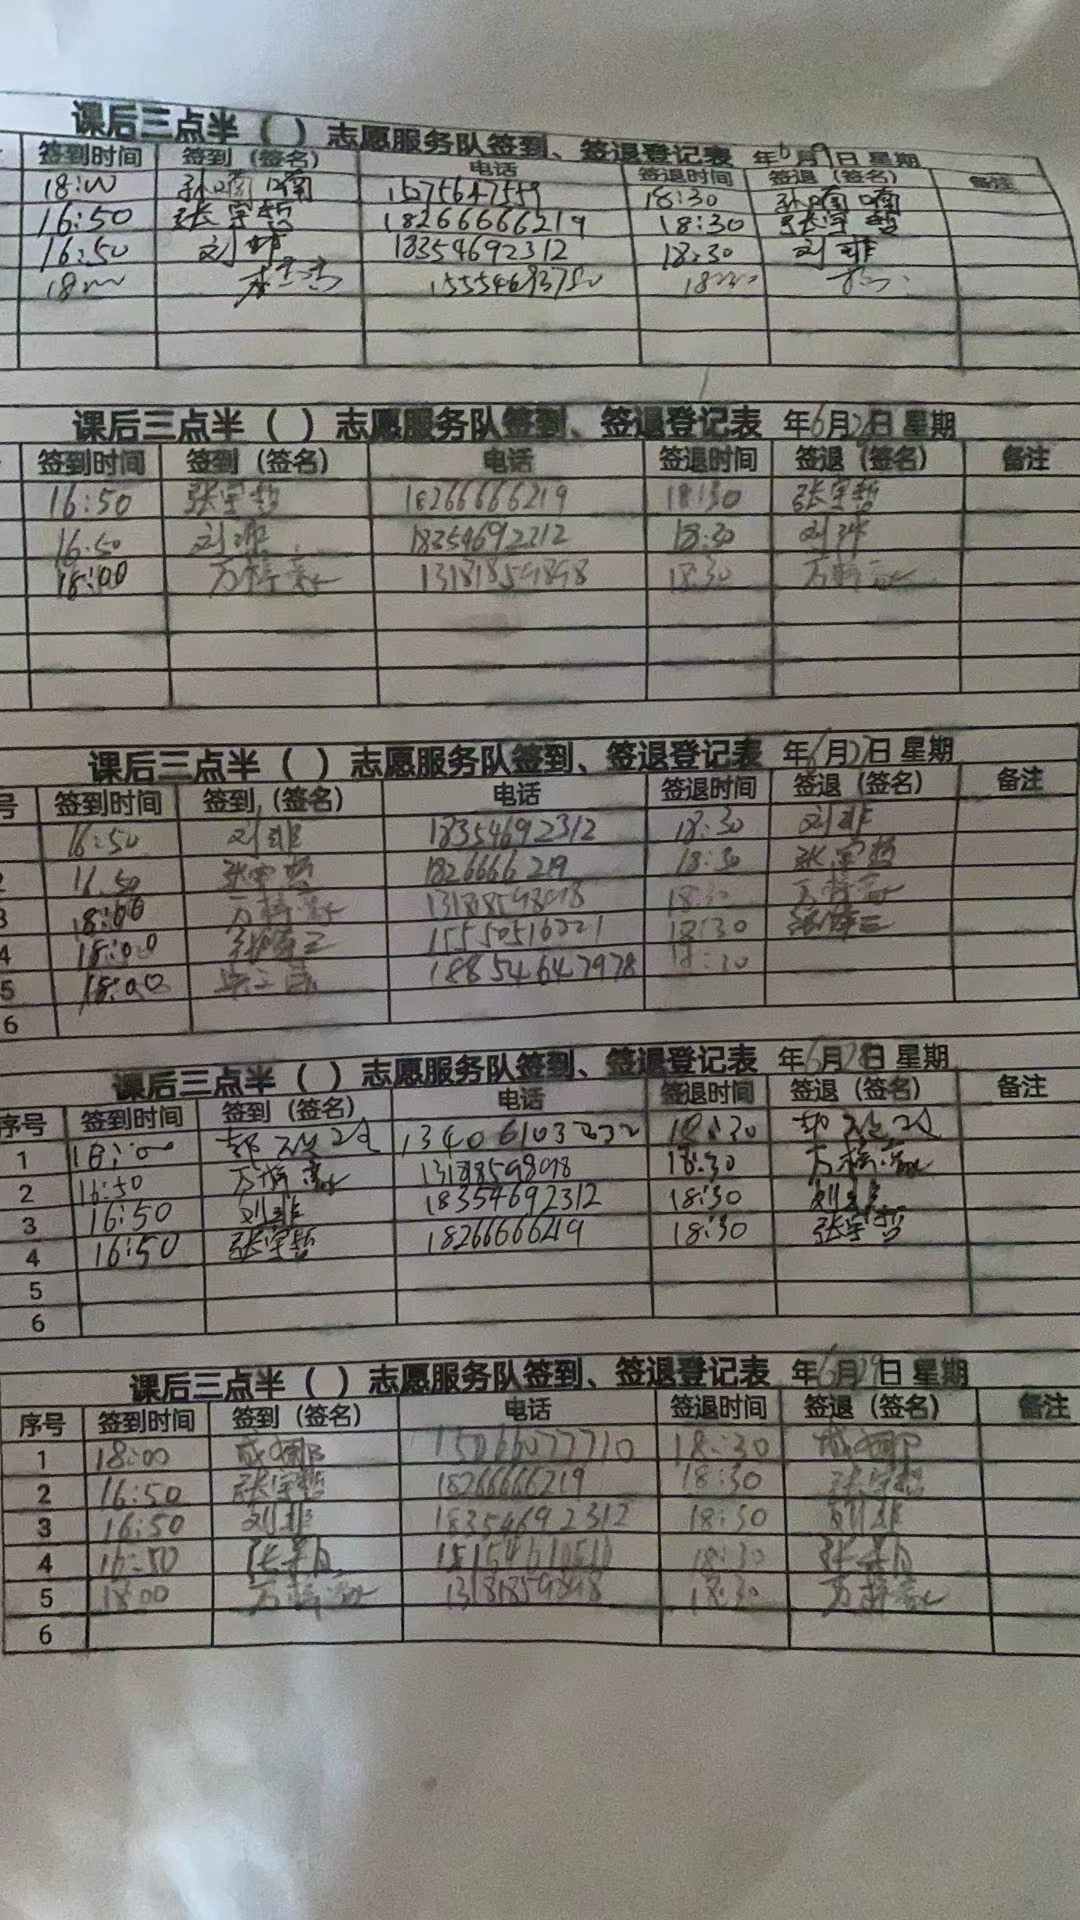 课后三点半（ ）志愿服务队签到、签退登记表 年6月9日 星期
签到时间 签到（签名） 电话 签退时间 签退（签名） 备注
18:00 孙喃喃 18:30 孙喃喃
16:50 张宇哲 18266666219 18:30 张宇哲
16:50 刘菲 18354692312 18:30 刘菲
课后三点半（ ）志愿服务队签到、签退登记表 年6月 日 星期
签到时间 签到（签名） 电话 签退时间 签退（签名） 备注
16:50 张宇哲 18266666219 18:30 张宇哲
16:50 刘菲 18354692312 18:30 刘菲
18:00 13181859898 18:30
课后三点半（ ）志愿服务队签到、签退登记表 年6月27日 星期
号 签到时间 签到（签名） 电话 签退时间 签退（签名） 备注
16:50 刘菲 18354692312 18:30 刘菲
2 16:50 张宇哲 1826666219 18:30 张宇哲
3 18:00 18:30
4 18:00 18:30
5 18:00 18854647978
6
课后三点半（ ）志愿服务队签到、签退登记表 年6月28日 星期
序号 签到时间 签到（签名） 电话 签退时间 签退（签名） 备注
1 18:00 13406103232 18:30
2 16:50 18:30
3 16:50 刘菲 18354692312 18:30 刘菲
4 16:50 张宇哲 18266666219 18:30 张宇哲
5
6
课后三点半（ ）志愿服务队签到、签退登记表 年6月29日 星期
序号 签到时间 签到（签名） 电话 签退时间 签退（签名） 备注
1 18:00 15066077710 18:30
2 16:50 张宇哲 18266666219 18:30 张宇哲
3 16:50 刘菲 18354692312 18:30 刘菲
4 16:50 18:30
5 18:00 13181859898 18:30
6